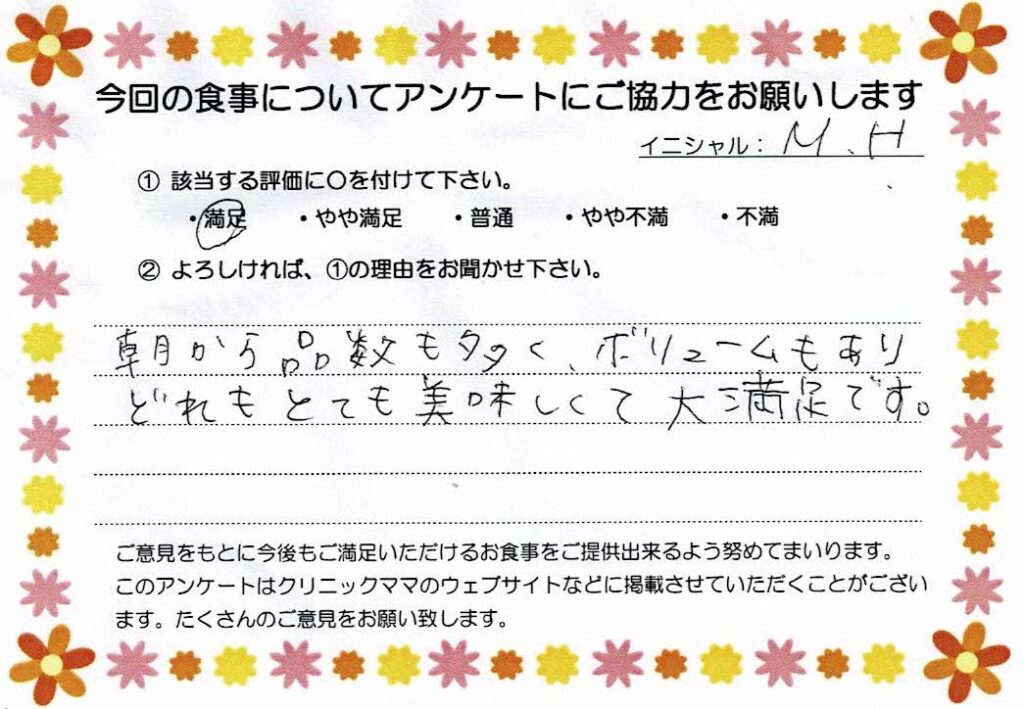 今回の食事についてアンケートにご協力をお願いします
イニシャル： M.H
① 該当する評価に〇を付けて下さい。
・満足 ・やや満足 ・普通 ・やや不満 ・不満
② よろしければ、①の理由をお聞かせ下さい。
朝から品数も多く、ボリュームもあり
どれもとても美味しくて大満足です。
ご意見をもとに今後もご満足いただけるお食事をご提供出来るよう努めてまいります。
このアンケートはクリニックママのウェブサイトなどに掲載させていただくことがござい
ます。たくさんのご意見をお願い致します。